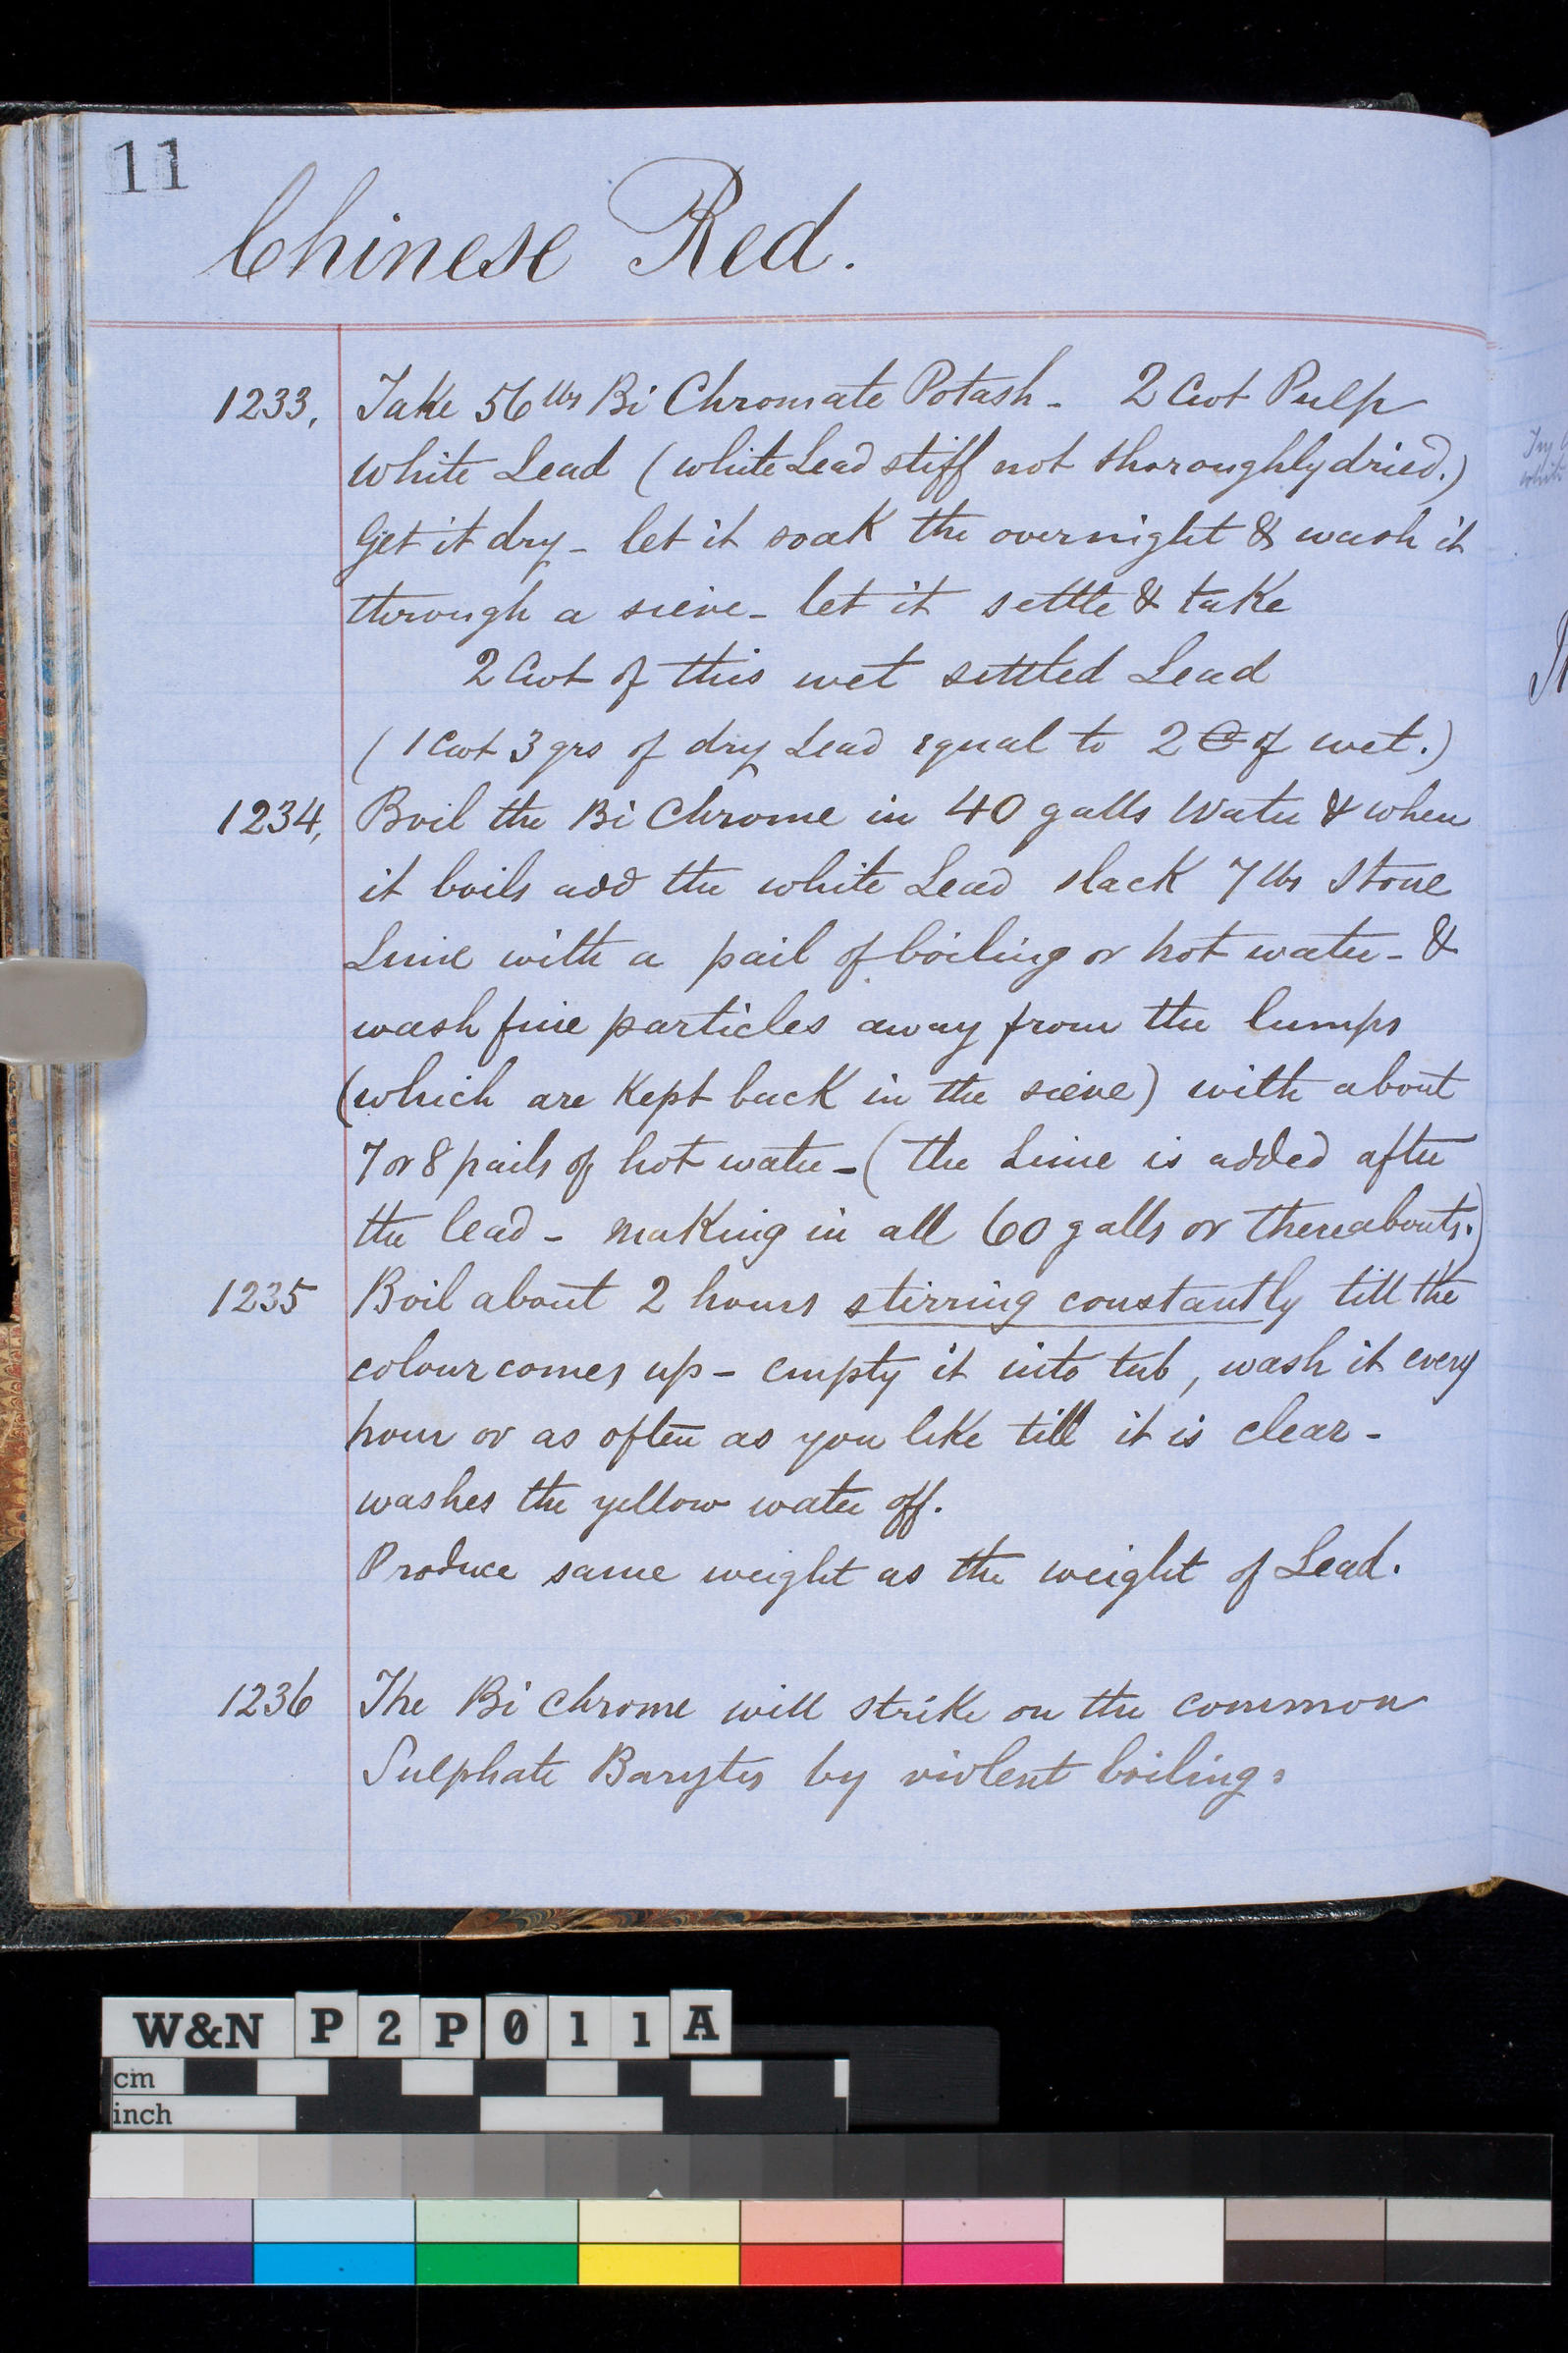 11
Chinese Red.
1233, Take 56 lbs Bi Chromate Potash - 2 Cwt Pulp
White Lead (white Lead stiff not thoroughly dried.)
Get it dry - let it soak the overnight & wash it
through a sieve - let it settle & take
2 Cwt of this wet settled Lead
(1 Cwt 3 qrs of dry Lead equal to 2 C of wet.)
1234, Boil the Bi Chrome in 40 galls Water & when
it boils add the white Lead slack 7 lbs Stone
Lime with a pail of boiling or hot water - &
wash fine particles away from the lumps
(which are kept back in the sieve) with about
7 or 8 pails of hot water - (the Lime is added after
the lead - making in all 60 galls or thereabouts.)
1235 Boil about 2 hours stirring constantly till the
colour comes up - empty it into tub, wash it every
hour or as often as you like till it is clear -
washes the yellow water off.
Produce same weight as the weight of Lead.
1236 The Bi Chrome will strike on the common
Sulphate Barytes by violent boiling.
W&N P2P011A
cm
inch